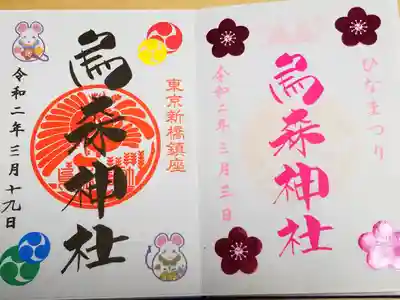 東京新橋鎮座
烏森神社
令和二年三月十九日
ひなまつり
烏森神社
令和二年三月三日